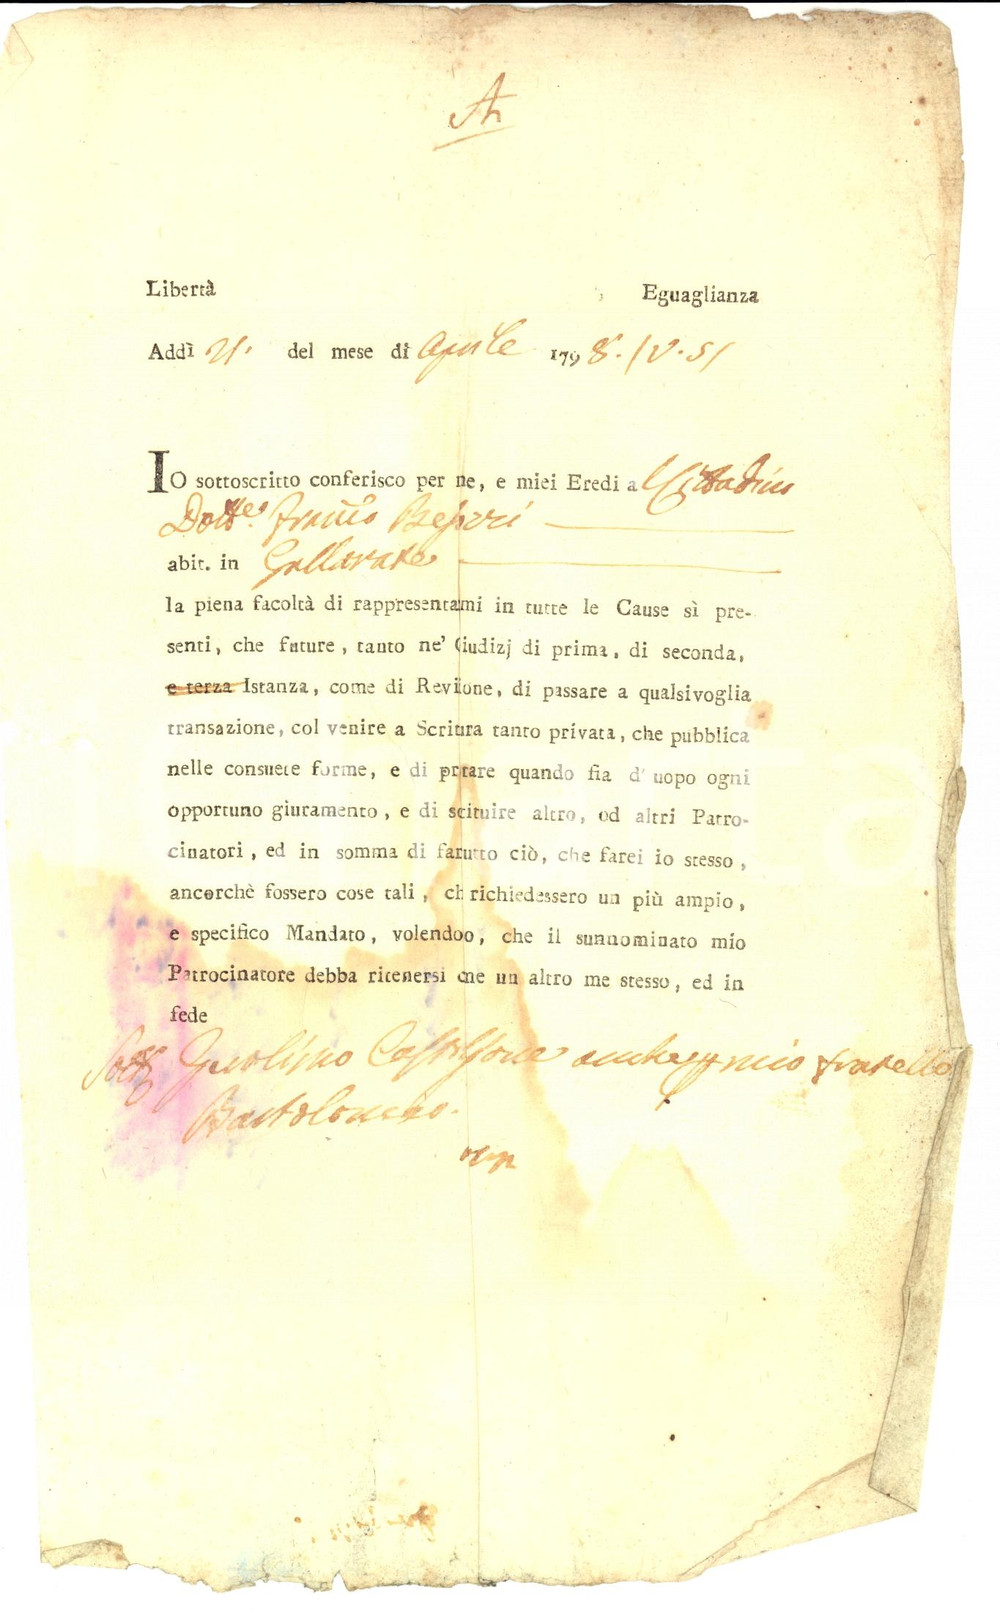 A
Libertà Eguaglianza
Addì 21. del mese di Aprile 1798. /V.S/
IO sottoscritto conferisco per me, e miei Eredi al Cittadino
Dott.e Fran.co Beseri
abit. in Gallarate
la piena facoltà di rappresentarmi in tutte le Cause sì pre-
senti, che future, tanto ne' Giudizj di prima, di seconda,
e terza Istanza, come di Revisione, di passare a qualsivoglia
transazione, col venire a Scritura tanto privata, che pubblica
nelle consuete forme, e di prestare quando fia d' uopo ogni
opportuno giuramento, e di sostituire altro, od altri Patro-
cinatori, ed in somma di far tutto ciò, che farei io stesso,
ancorchè fossero cose tali, che richiedessero un più ampio,
e specifico Mandato, volendo, che il sunnominato mio
Patrocinatore debba ritenersi come un altro me stesso, ed in
fede
Sott. Castiglione anche mio fratello
Bartolomeo.